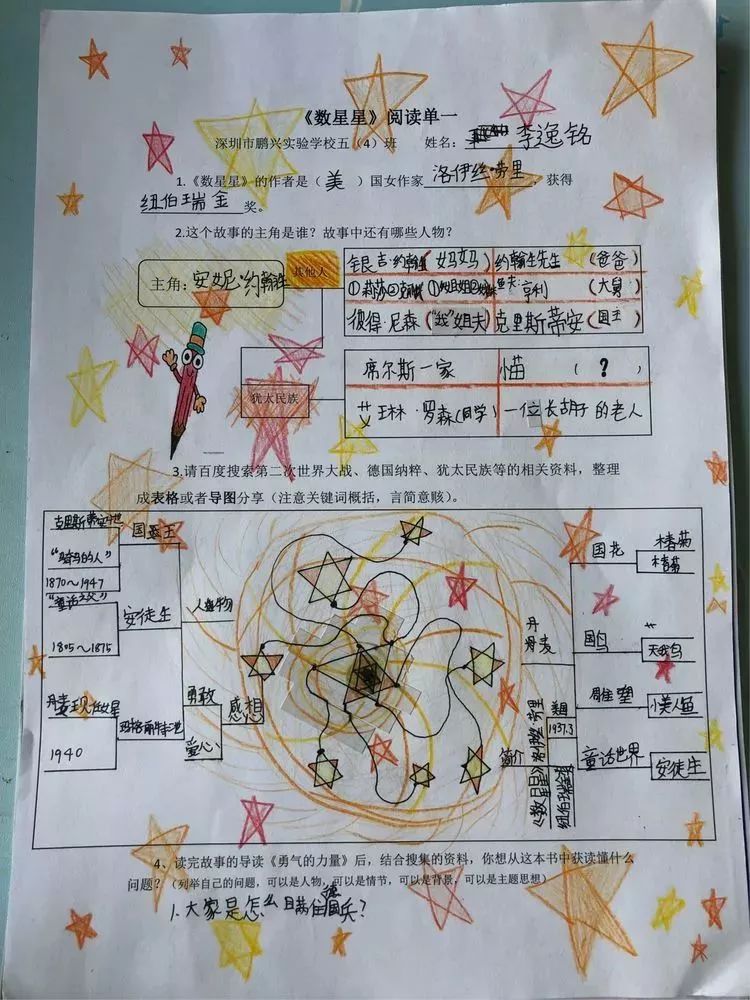 《数星星》阅读单一
深圳市鹏兴实验学校五（4）班 姓名：李逸铭
1.《数星星》的作者是（美）国女作家洛伊丝·劳里，获得
纽伯瑞金奖。
2.这个故事的主角是谁？故事中还有哪些人物？
主角：安妮·约翰生
其他人
银吉·约翰生（妈妈） 约翰生先生（爸爸）
①莉莎② 亨利（大舅）
彼得·尼森（“我”姐夫） 克里斯蒂安（国王）
犹太民族
席尔斯一家 猫（？）
艾琳林·罗森（同学） 一位长胡子的老人
3.请百度搜索第二次世界大战、德国纳粹、犹太民族等的相关资料，整理
成表格或者导图分享（注意关键词概括，言简意赅）。
国王
“骑马的人”
1870～1947
安徒生
“童话之父”
1805～1875
丹麦现任女星
1940
人物
勇敢
爱心
感想
丹麦
国花
国鸟
天鹅鸟
雕塑
小美人鱼
童话世界
安徒生
简介
美国
1937.3
《数星星》
纽伯瑞金奖
4、读完故事的导读《勇气的力量》后，结合搜集的资料，你想从这本书中获读懂什么
问题？（列举自己的问题，可以是人物，可以是情节，可以是背景，可以是主题思想）
1.大家是怎么瞒住德国兵？